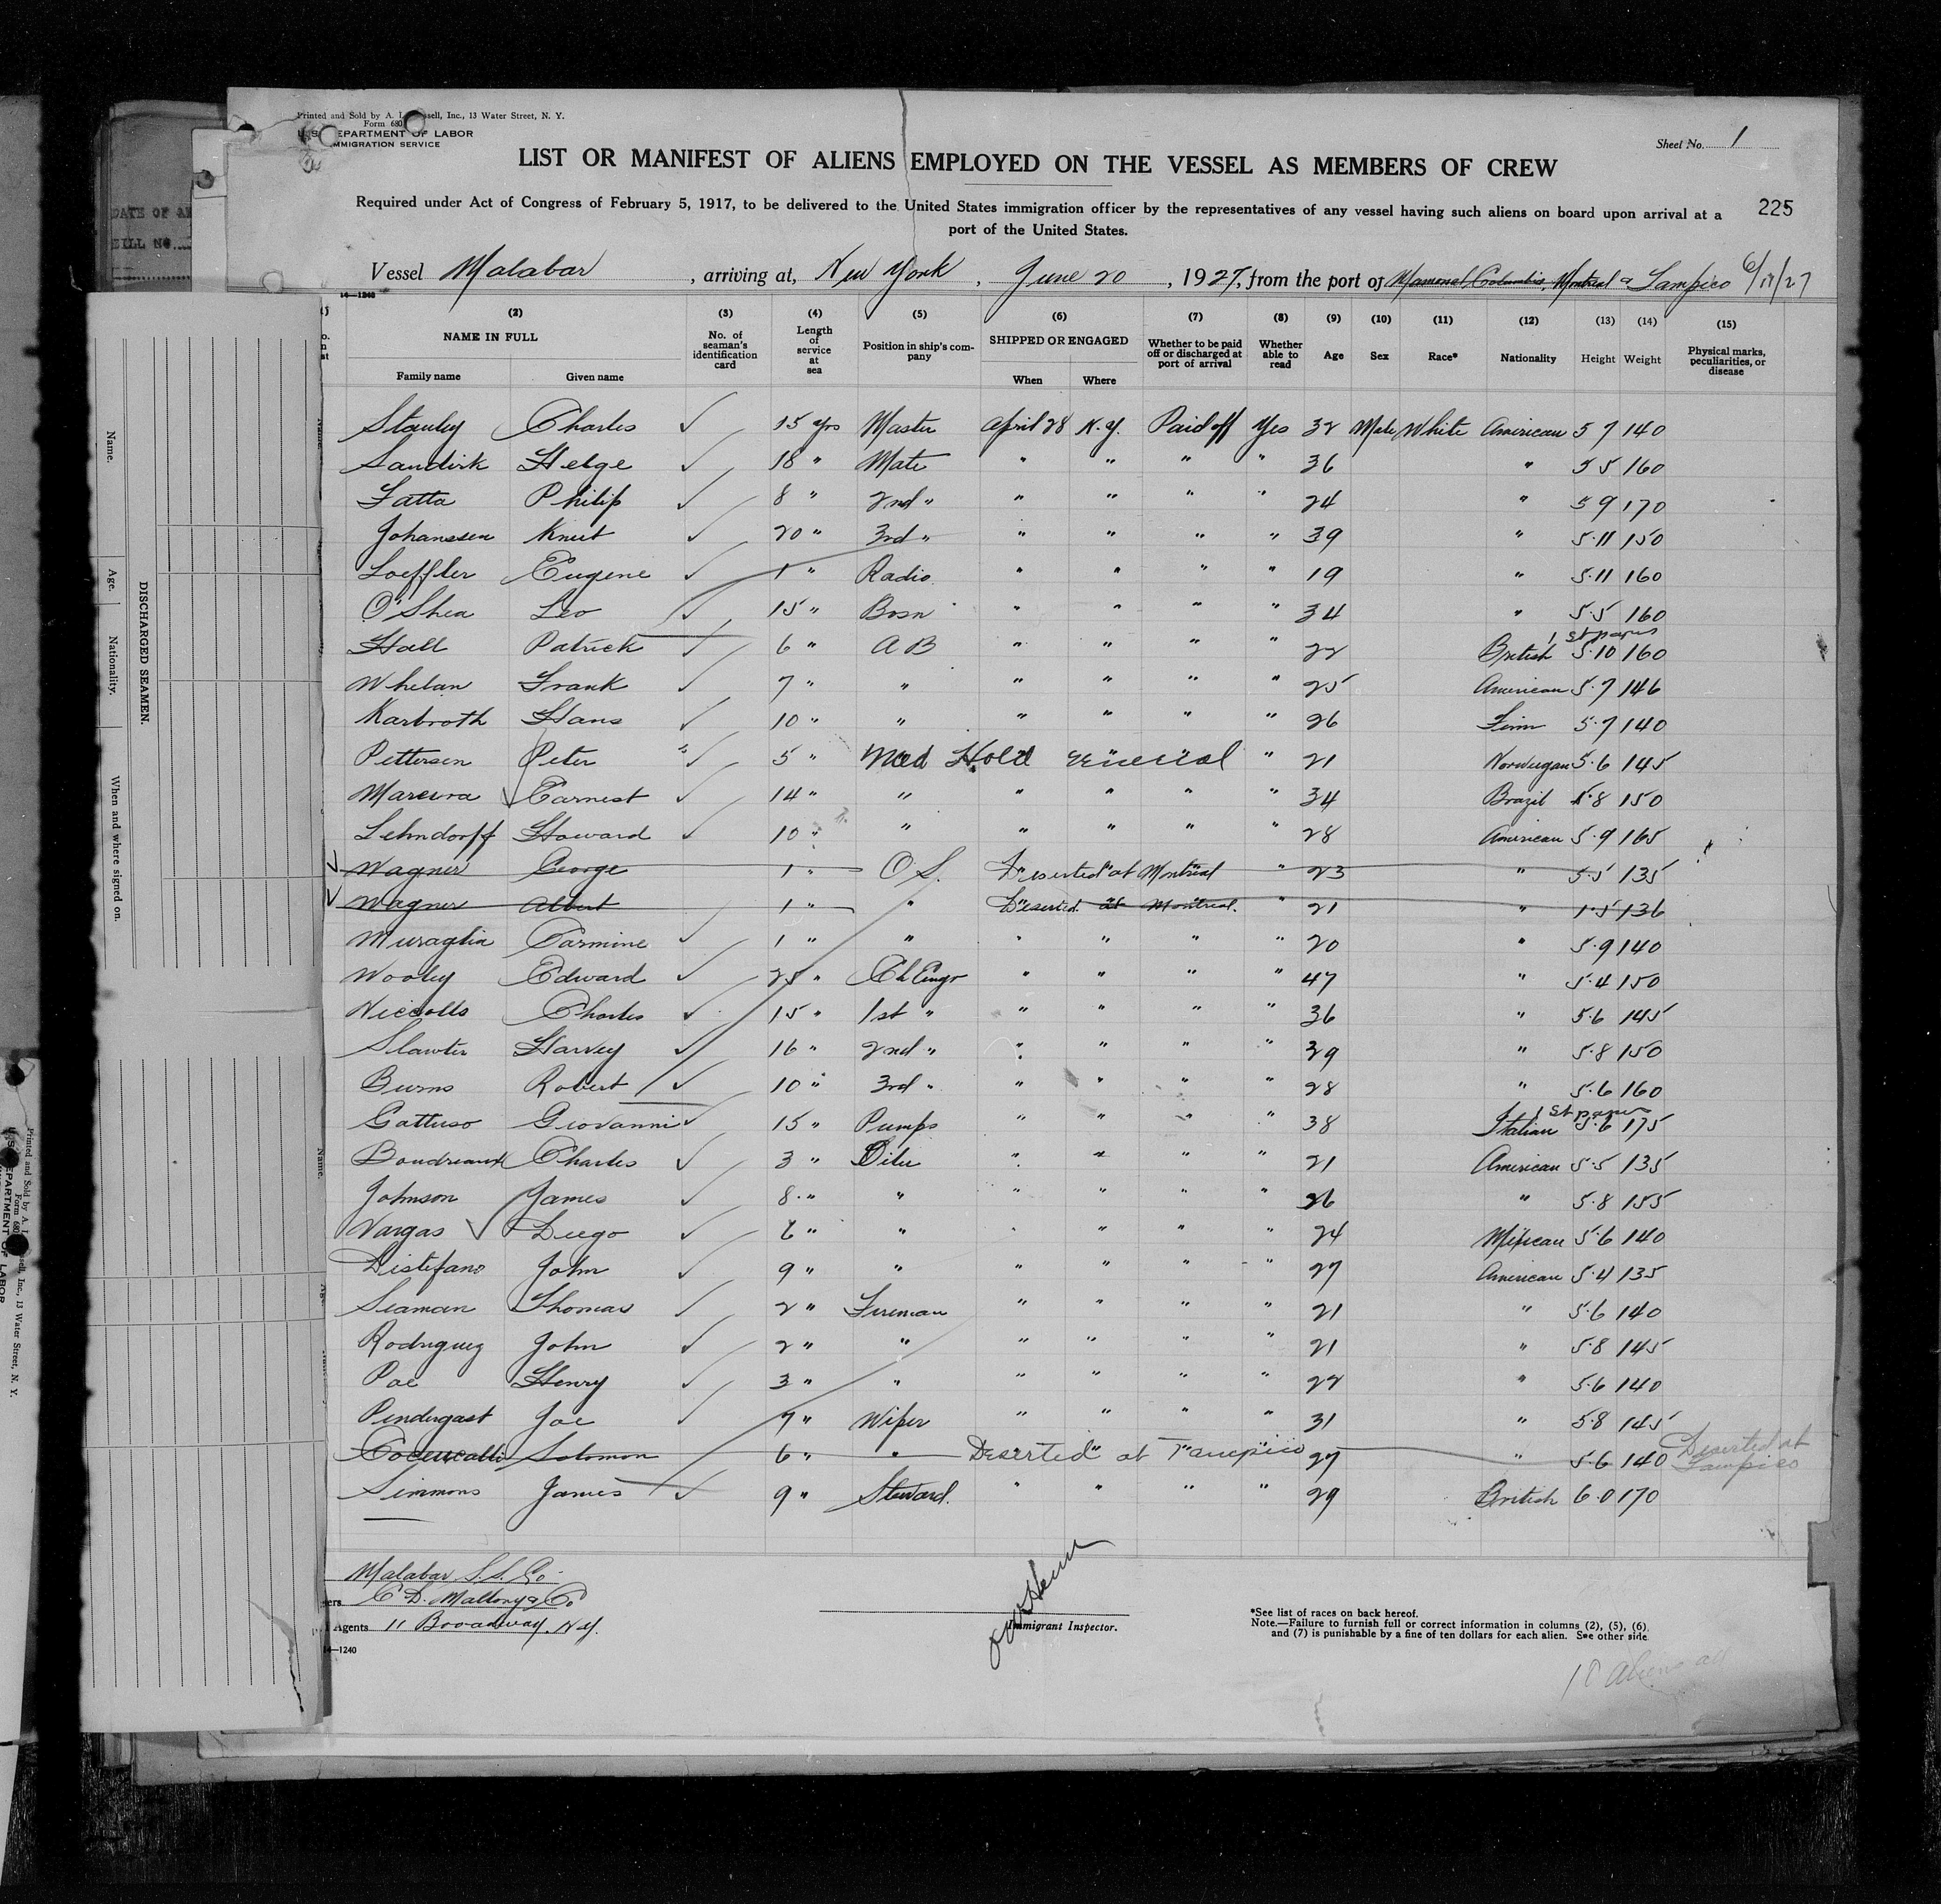 Printed and Sold by A. L. ssell, Inc., 13 Water Street, N. Y.
Form 680
U. S. DEPARTMENT OF LABOR
IMMIGRATION SERVICE
Sheet No. 1
LIST OR MANIFEST OF ALIENS EMPLOYED ON THE VESSEL AS MEMBERS OF CREW
Required under Act of Congress of February 5, 1917, to be delivered to the United States immigration officer by the representatives of any vessel having such aliens on board upon arrival at a
port of the United States.
225
DATE OF
BILL NO.
Vessel Malabar, arriving at, New York, June 20, 1927, from the port of Mamonal, Columbia, Montreal & Tampico 6/17/27
14—1240
(2) (3) (4) (5) (6) (7) (8) (9) (10) (11) (12) (13) (14) (15)
NAME IN FULL
Family name Given name
No. of seaman's identification card
Length of service at sea
Position in ship's company
SHIPPED OR ENGAGED
When Where
Whether to be paid off or discharged at port of arrival
Whether able to read
Age Sex Race* Nationality Height Weight
Physical marks, peculiarities, or disease
Stanley Charles ✓ 15 yrs Master April 28 N.Y. Paid off Yes 32 Male White American 5 7 140
Sandirk Helge ✓ 18 " Mate " " " " 36 " 5 5 160
Fatta Philip ✓ 8 " 2nd " " " " " 24 " 5 9 170
Johanssen Knut ✓ 20 " 3rd " " " " " 39 " 5.11 150
Loeffler Eugene ✓ 1 " Radio " " " " 19 " 5.11 160
O'Shea Leo ✓ 15 " Bosn " " " " 34 " 5.5 160
Hall Patrick ✓ 6 " A B " " " " 22 British 1st papers 5.10 160
Whelan Frank ✓ 7 " " " " " " 25 American 5.7 146
Karbroth Hans ✓ 10 " " " " " " 26 Finn 5.7 140
Pettersen Peter ✓ 5 " Med Hold " 21 Norwegan 5.6 145
Mareira Earnest ✓ 14 " " " " " " 34 Brazil 5.8 150
Lehndorff Howard ✓ 10 " " " " " " 28 American 5.9 165
Wagner George 1 " O S. Deserted at Montreal " 23 " 5.5 135
Wagner Albert 1 " " Deserted at Montreal. " 21 " 1.5 136
Muraglia Carmine ✓ 1 " " " " " " 20 " 5.9 140
Wooley Edward ✓ 25 " Ch Engr " " " " 47 " 5.4 150
Niccolls Charles ✓ 15 " 1st " " " " " 36 " 5.6 145
Slawter Harvey ✓ 16 " 2nd " " " " " 39 " 5.8 150
Burns Robert ✓ 10 " 3rd " " " " " 28 " 5.6 160
Gattuso Giovanni ✓ 15 " Pumps " " " " 38 Italian 1st papers 5.6 175
Boudreaux Charles ✓ 3 " Oiler " " " " 21 American 5.5 135
Johnson James ✓ 8 " " " " " " 26 " 5.8 155
Vargas Diego ✓ 6 " " " " " " 24 Mexican 5.6 140
Distefano John ✓ 9 " " " " " " 27 American 5.4 135
Seaman Thomas ✓ 2 " Fireman " " " " 21 " 5.6 140
Rodriguez John ✓ 2 " " " " " " 21 " 5.8 145
Poe Henry ✓ 3 " " " " " " 22 " 5.6 140
Pendergast Joe ✓ 7 " Wiper " " " " 31 " 5.8 145
Solomon 6 " " Deserted at Tampico 27 " 5.6 140 Deserted at Tampico
Simmons James ✓ 9 " Steward. " " " " 29 British 6.0 170
Malabar S.S. Co
C D. Mallory & Co
Agents 11 Broadway. N.Y.
14—1240
Immigrant Inspector.
*See list of races on back hereof.
Note.—Failure to furnish full or correct information in columns (2), (5), (6),
and (7) is punishable by a fine of ten dollars for each alien. See other side
DISCHARGED SEAMEN.
Name.
Age.
Nationality.
When and where signed on.
Name.
Printed and Sold by A. L. ssell, Inc., 13 Water Street, N. Y.
Form 680
U. S. DEPARTMENT OF LABOR